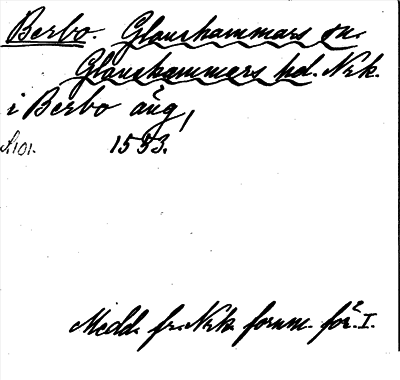 Berbo. Glanshammars sn.
Glanshammars hd. Nrk.
i Berbo äng,
S. 101. 1553.
Medd. fr. Nrk. fornm. för. I.